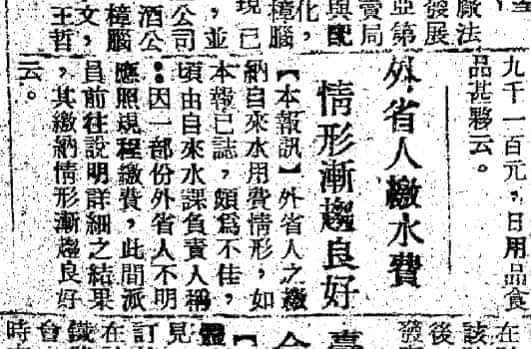 廠法
發展
亞第
賣局
與配
化，
樟腦
現已
，並
公司
酒公
樟腦
文，
王哲
九千一百元，日用品食
品甚夥云。
外省人繳水費
情形漸趨良好
【本報訊】外省人之繳
納自來水用費情形，如
本報已誌，頗爲不佳，
頃由自來水課負責人稱
：因一部份外省人不明
應照規程繳費，此間派
員前往說明詳細之結果
，其繳納情形漸趨良好
云。
在
該
後
發
見
訂
在
鐵
台
時